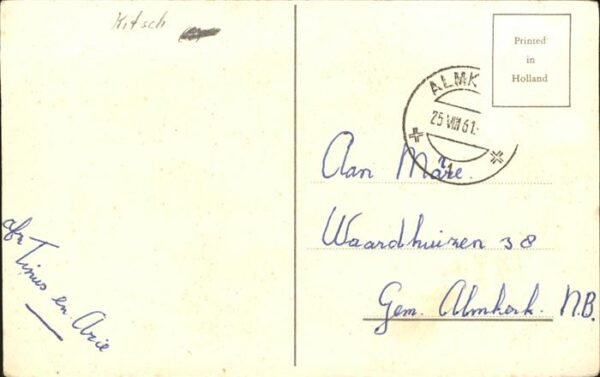 Kitsch
Printed
in
Holland
ALMK
25 VIII 61.
1
Aan Mare.
Waardhuizen 38
Gem. Almkerk. N.B.
afz Tinus en Arie